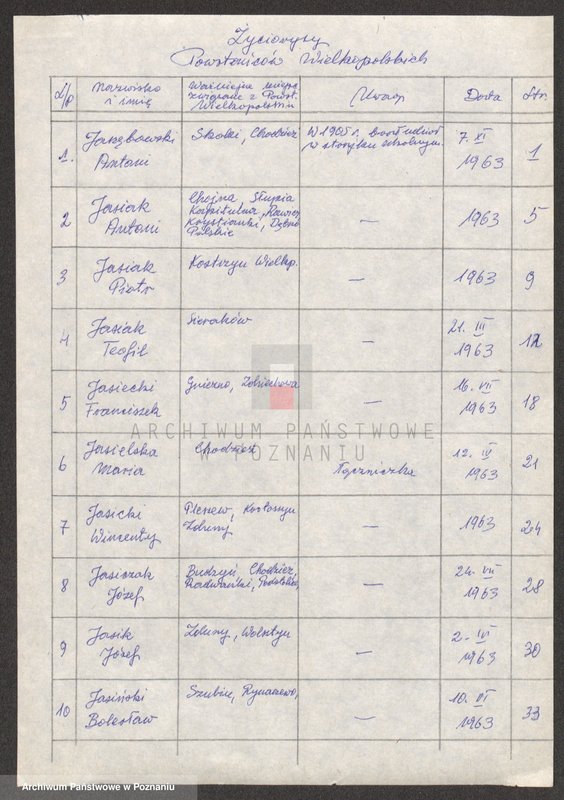 Życiorysy
Powstańców Wielkopolskich
L/p Nazwisko i imię Ważniejsze miejsca związane z Powst. Wielkopolskim Uwagi Data Str.
1. Antoni Skoki, Chodzież W 1905 r. brał udział w strajku szkolnym. 7. XI 1963 1
2 Jasiak Antoni Chojna, Słupia Kapitulna, Rawicz, Dębno Polskie — 1963 5
3 Jasiak Piotr Kostrzyn Wielkp. — 1963 9
4 Jasiak Teofil Sieraków — 21. III 1963 12
5 Jasiecki Franciszek Gniezno, Zdziechowa — 16. VII 1963 18
6 Jasielska Maria Chodzież Łączniczka 12. IV 1963 21
7 Jasicki Wincenty Pleszew, Krotoszyn Zduny — 1963 24
8 Jasiczak Józef Budzyń Chodzież, — 24. VII 1963 28
9 Jasik Józef Zduny, Wolsztyn — 2. IV 1963 30
10 Jasiński Bolesław Szubin, Rynarzewo, — 10. III 1963 33
ARCHIWUM PAŃSTWOWE
W POZNANIU
Archiwum Państwowe w Poznaniu